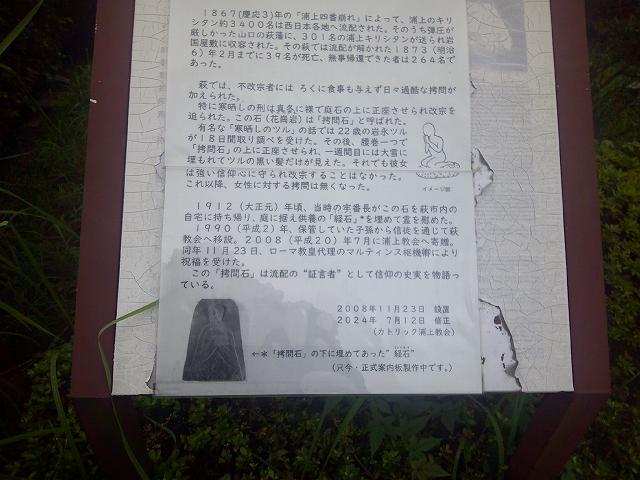 1867(慶応3)年の「浦上四番崩れ」によって、浦上のキリ
シタン約3400名は西日本各地へ流配された。そのうち弾圧が
厳しかった山口の萩藩に、301名の浦上キリシタンが送られ岩
国屋敷に収容された。その萩では流配が解かれた1873(明治
6)年2月までに39名が死亡、無事帰還できた者は264名で
あった。
萩では、不改宗者には ろくに食事も与えず日々過酷な拷問が
加えられた。
特に寒晒しの刑は真冬に裸で庭石の上に正座させられ改宗を
迫られた。この石(花崗岩)は「拷問石」と呼ばれた。
有名な「寒晒しのツル」の話では22歳の岩永ツル
が18日間取り調べを受けた。その後、腰巻一つで
「拷問石」の上に正座させられ、一週間目には大雪に
埋もれてツルの黒い髪だけが見えた。それでも彼女
は強い信仰心に守られ改宗することはなかった。
これ以降、女性に対する拷問は無くなった。
イメージ図
1912(大正元)年頃、当時の宇番長がこの石を萩市内の
自宅に持ち帰り、庭に据え供養の「経石」*を埋めて霊を慰めた。
1990(平成2)年、保管していた子孫から信徒を通じて萩
教会へ移設。2008(平成20)年7月に浦上教会へ寄贈。
同年11月23日、ローマ教皇代理のマルティンス枢機卿により
祝福を受けた。
この「拷問石」は流配の“証言者”として信仰の史実を物語っ
ている。
2008年11月23日 設置
2024年 7月12日 修正
(カトリック浦上教会)
←*「拷問石」の下に埋めてあった“経石”
(只今・正式案内板製作中です。)